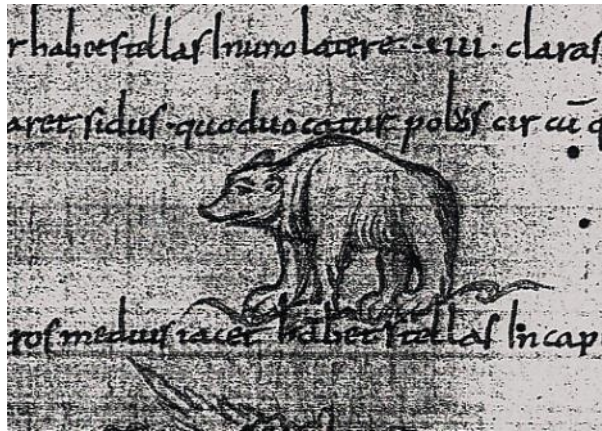 r habet stellas In uno latere · iiii · claras
aret sidus · quod uocatur polus circū q
ros medius iacet habet stellas In cap